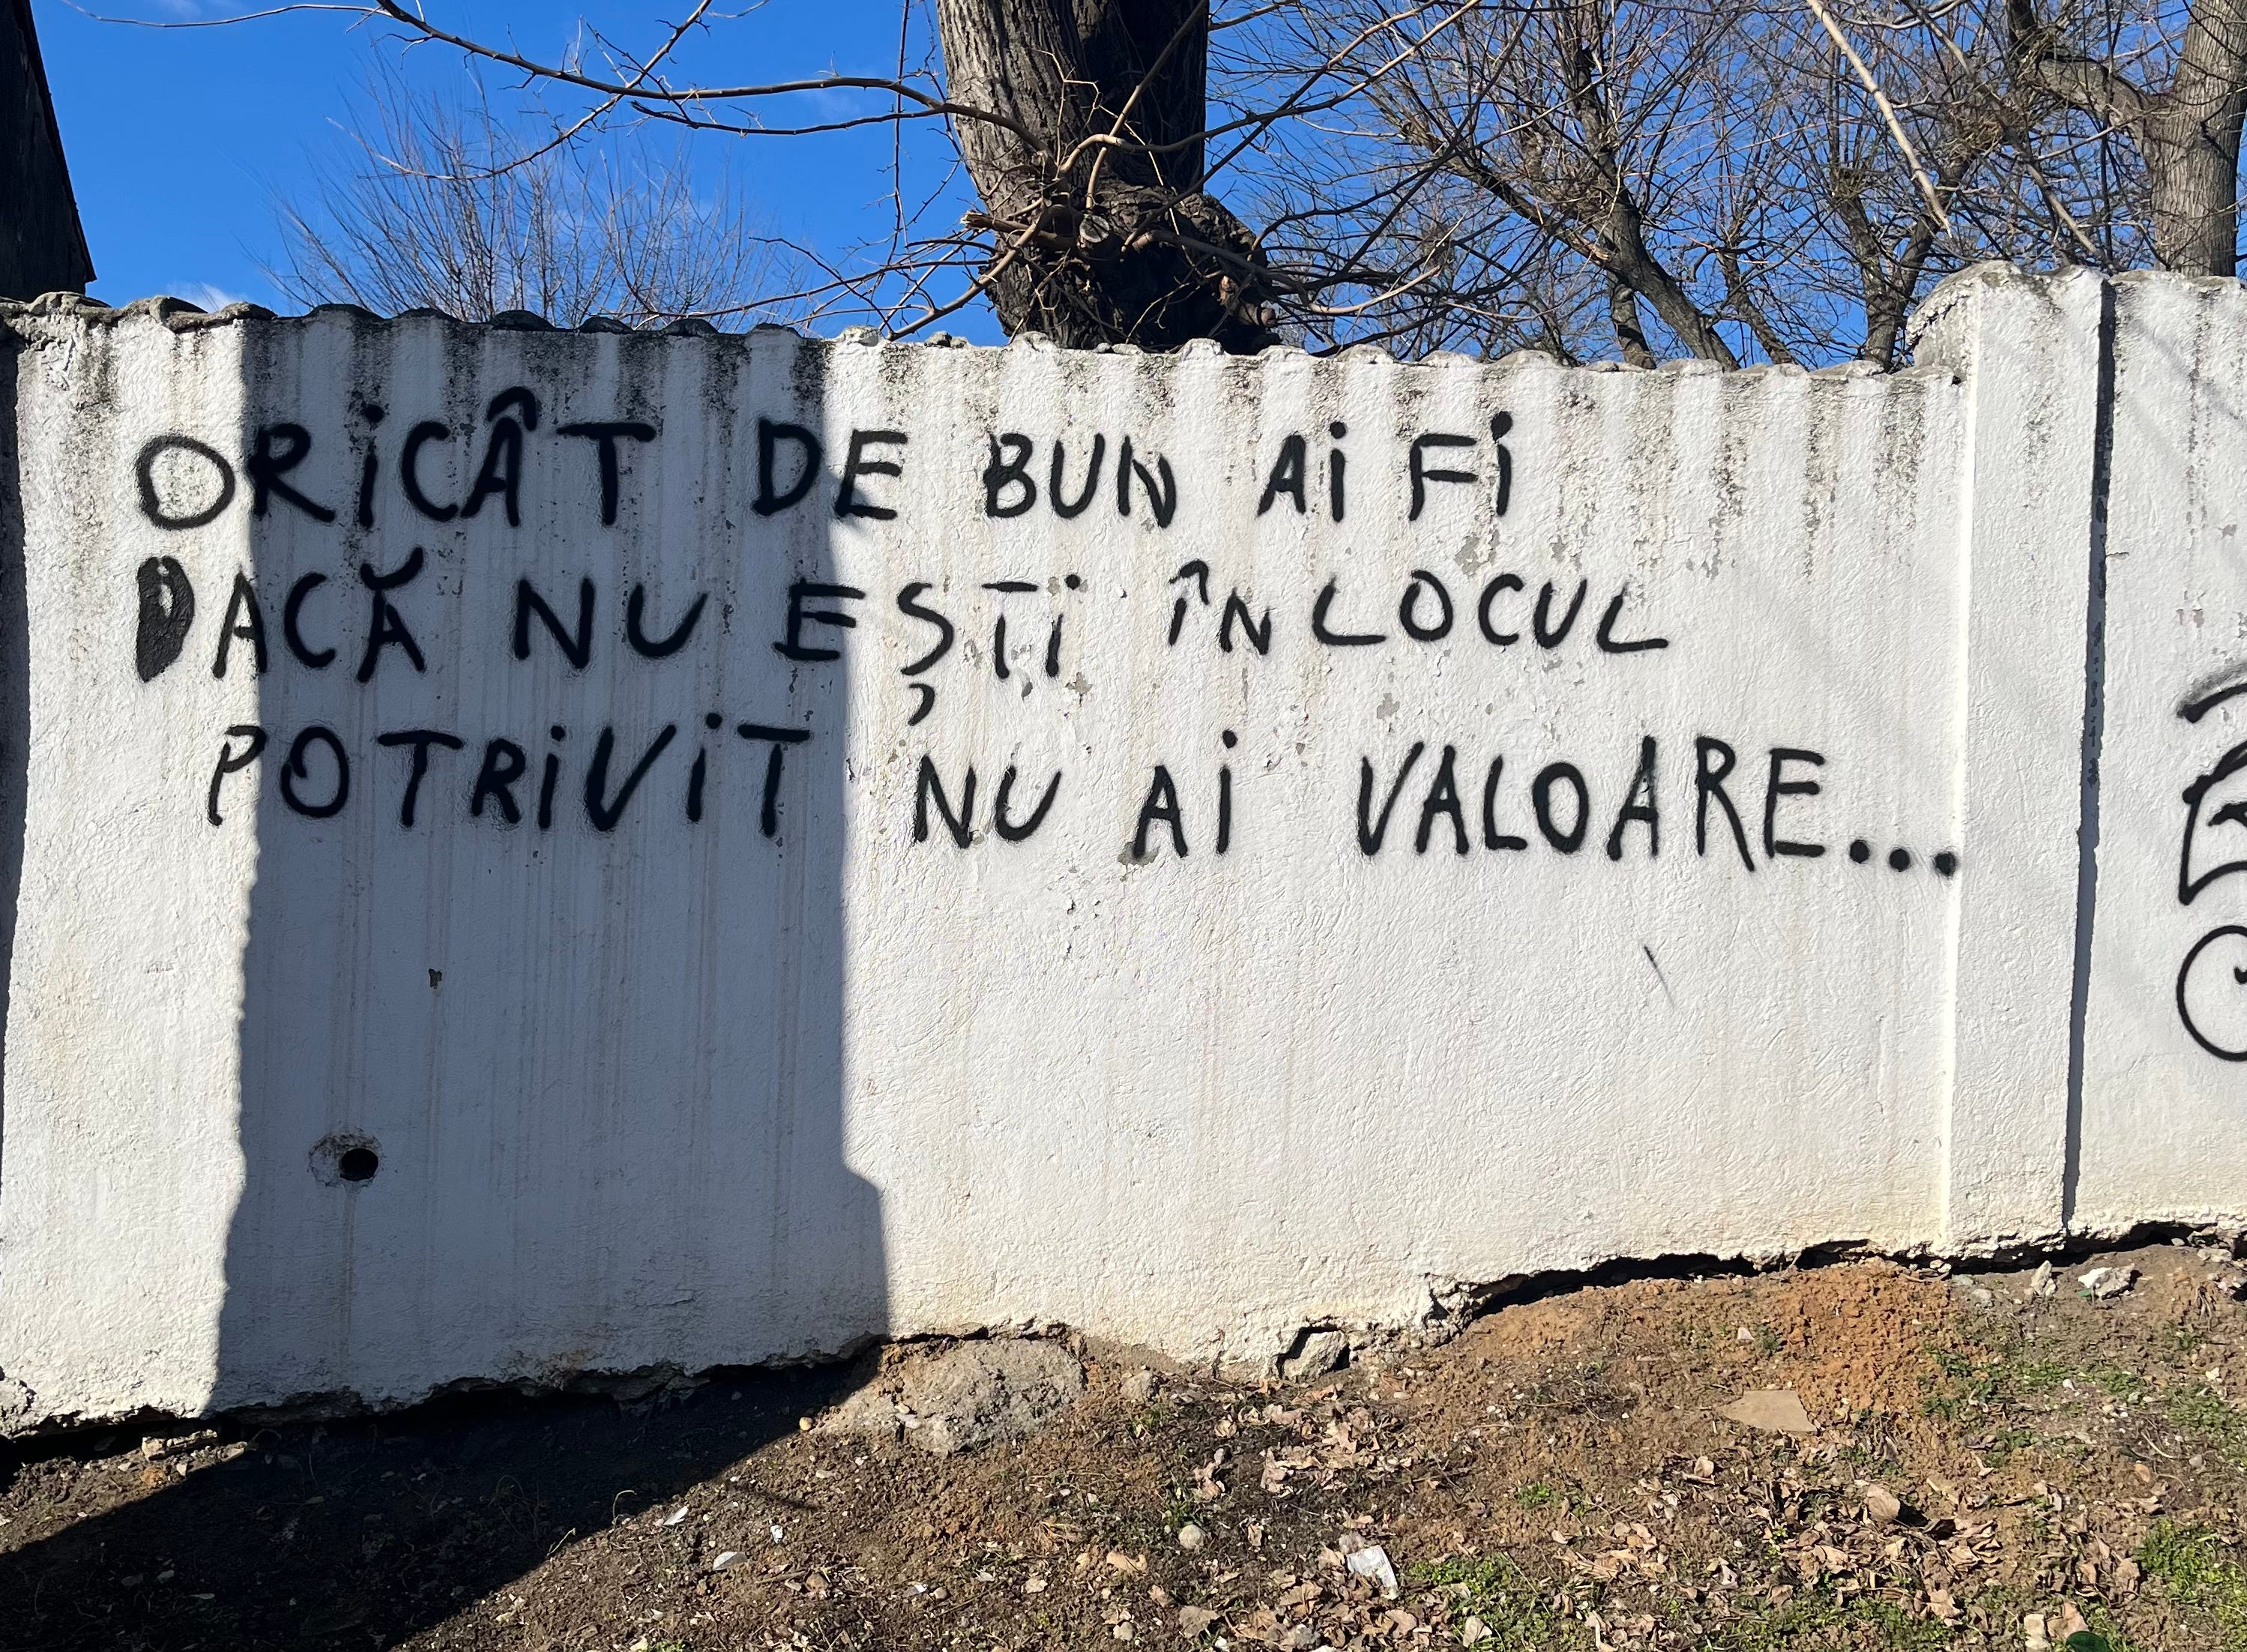 ORiCÂT DE BUN Ai Fi
DACĂ NU EȘTi ÎN LOCUL
POTRiViT NU Ai VALOARE...